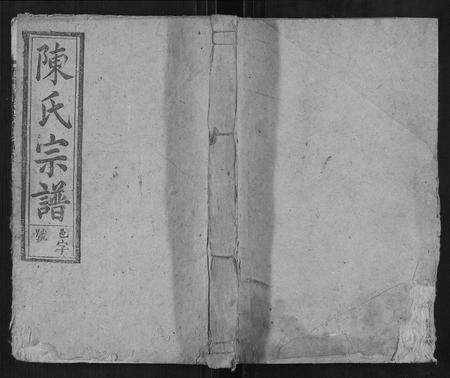 陳氏宗譜
色字
號